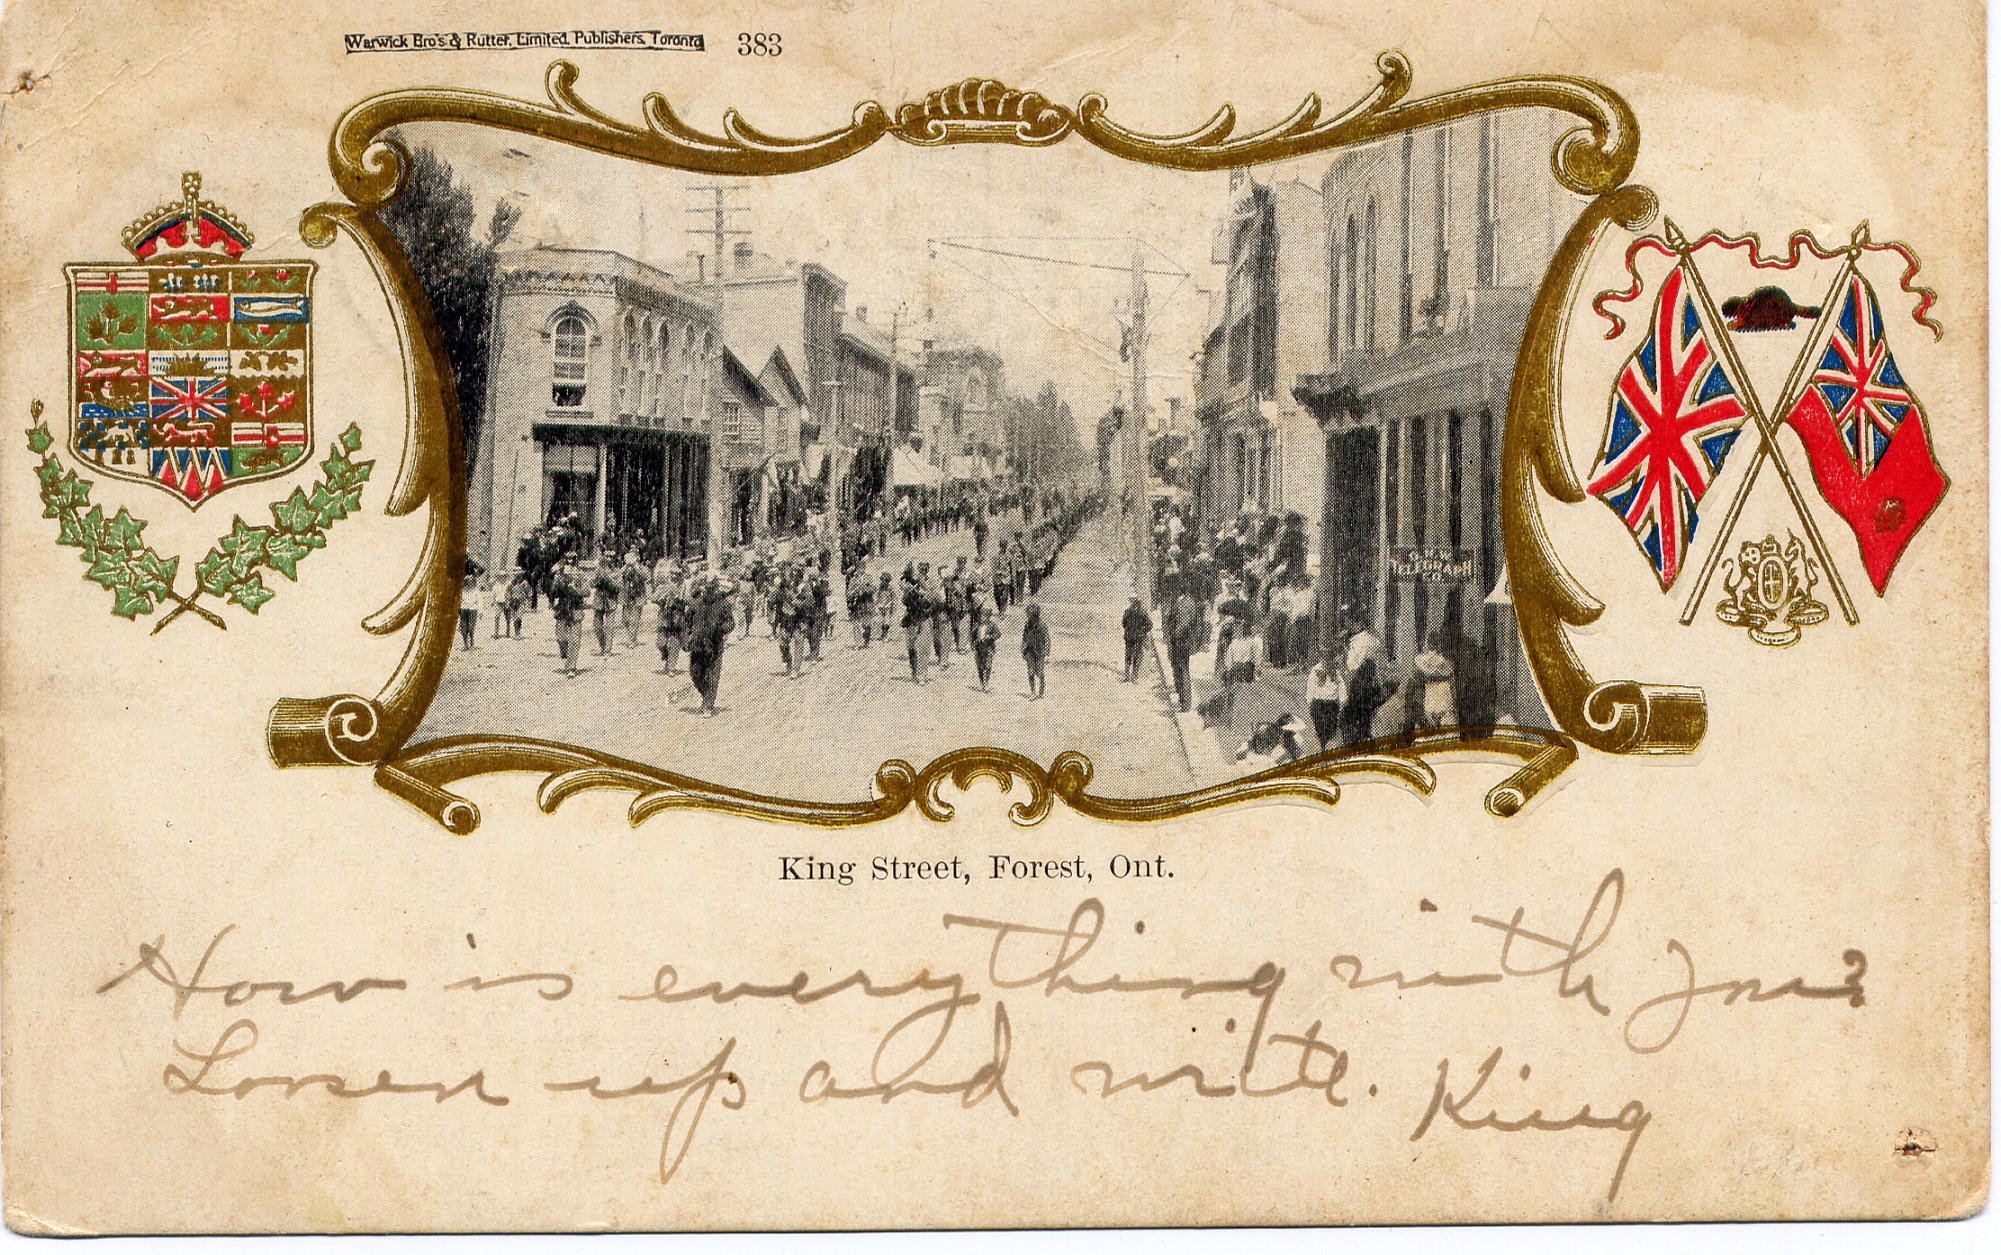 Warwick Bro's & Rutter, Limited, Publishers, Toronto 383
G.N.W.
TELEGRAPH
CO.
King Street, Forest, Ont.
How is everything with you?
Loosen up and write. King